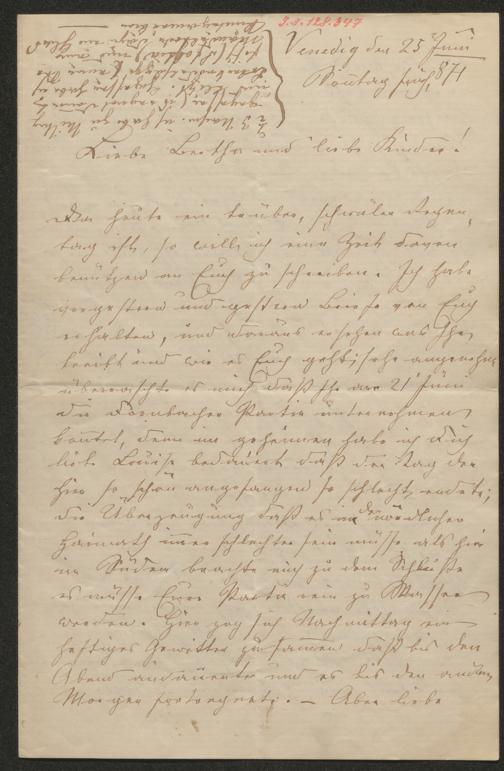 I.N. 128.347
Venedig den 25 Juni
Sonntag früh, 871
Liebe Bertha und liebe Kinder!
Da heute ein trüber, schwüler Regen-
tag ist, so will ich eine Zeit davon
benützen an Euch zu schreiben. Ich habe
vorgestern und gestern Briefe von Euch
erhalten, und daraus ersehen was Ihr
treibt und wie es Euch geht, sehr angenehm
überraschte es mich daß Ihr am 21 Juni
die Dornbacher Partie unternehmen
konntet, denn im geheimen habe ich Dich
liebe Louise bedauert daß der Tag der
hier so schön angefangen so schlecht endete;
die Überzeugung daß es in der nördlichen
Heimath immer schlechter sein müsse als hier
im Süden brachte mich zu dem Schlusse
es müsse Eure Partie rein zu Wasser
werden. Hier zog sich Nachmittag ein
heftiges Gewitter zusammen daß bis den
Abend andauerte und es bis den andern
Morgen fortregnete. – Aber liebe